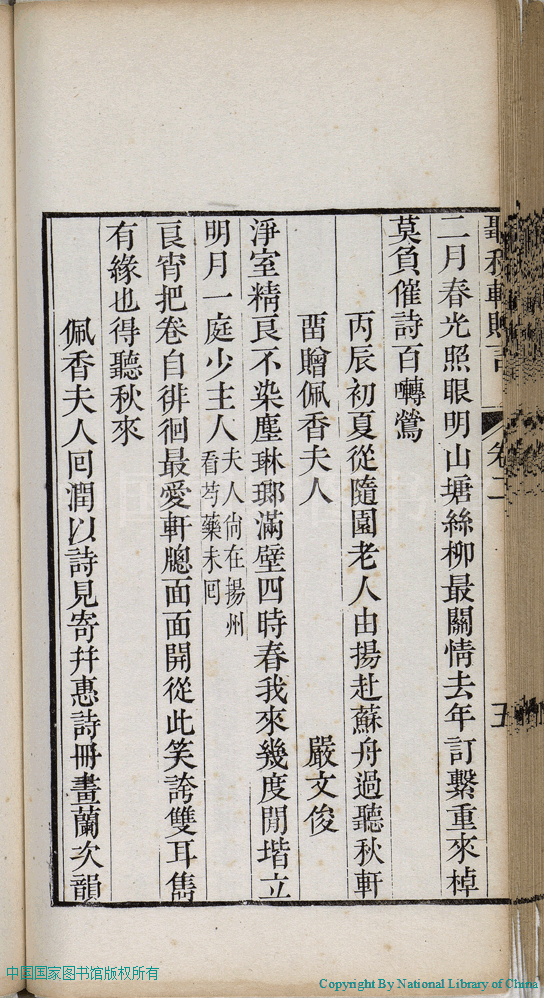 聽秋軒贈言 卷二 五
二月春光照眼明山塘絲柳最關情去年訂繫重來棹
莫負催詩百囀鶯
丙辰初夏從隨園老人由揚赴蘇舟過聽秋軒
畱贈佩香夫人 嚴文俊
淨室精良不染塵琳瑯滿壁四時春我來幾度閒堦立
明月一庭少主人夫人尙在揚州看芍藥未囘
良宵把卷自徘徊最愛軒牕面面開從此笑誇雙耳雋
有緣也得聽秋來
佩香夫人囘潤以詩見寄幷惠詩冊畫蘭次韻
中国国家图书馆版权所有
Copyright By National Library of China